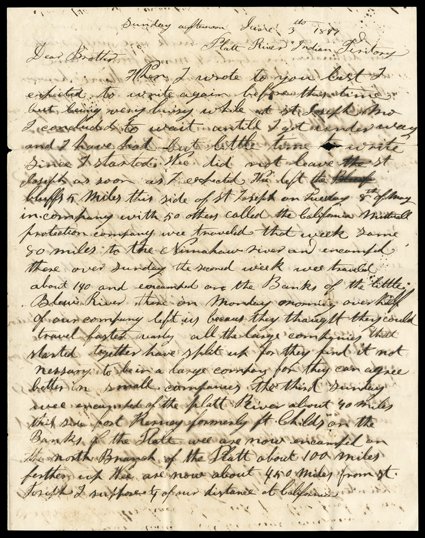 Sunday afternoon June 3th
Platt River Indian Territory
Dear Brother
When I wrote to you last I
expected to write again before this time
but being very busy while at St Joseph Mo
I concluded to wait untill I got under way
and I have had but little time to write
since I started. Wee did not leave the St
Joseph as soon as I expected Wee left the
bluffs 5 Miles this side of St Joseph on Tuesday 8th of May
in company with 50 others called the California Mutuall
protection company wee traveled that week some
50 miles to the Nimahaw river and encamped
there over Sunday the second week wee traveled
about 140 and encamped on the Banks of the Little
Blew River then on Monday morning over half
of our company left us becaus they thought they could
travel faster nearly all the large companies that
started together have split up for they find it not
nessary to be in a large company for they can agree
better in small companies the third Sunday
wee encamped of the platt River about 40 miles
this side post Kerney formerly ft Childs on the
Banks of the Platte wee are now encamped on
the north Branch of the Platt about 100 miles
further up Wee are now about 450 Miles from St
Joseph I suppose ¼ of our distance to California